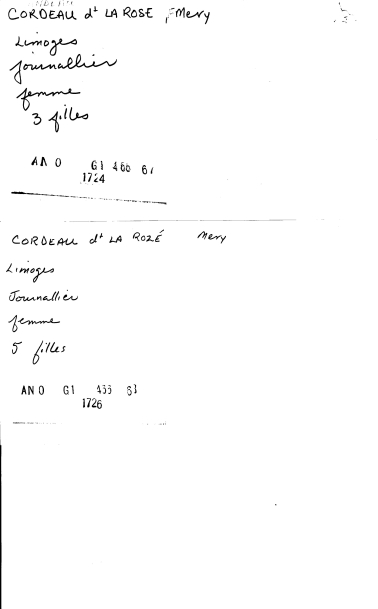 CORDEAU dt LA ROSE, Mery
Limoges
Journallier
femme
3 filles
AN O G1 466 61
1724
CORDEAU dt LA ROZÉ Mery
Limoges
Journallier
femme
5 filles
AN O G1 466 61
1726